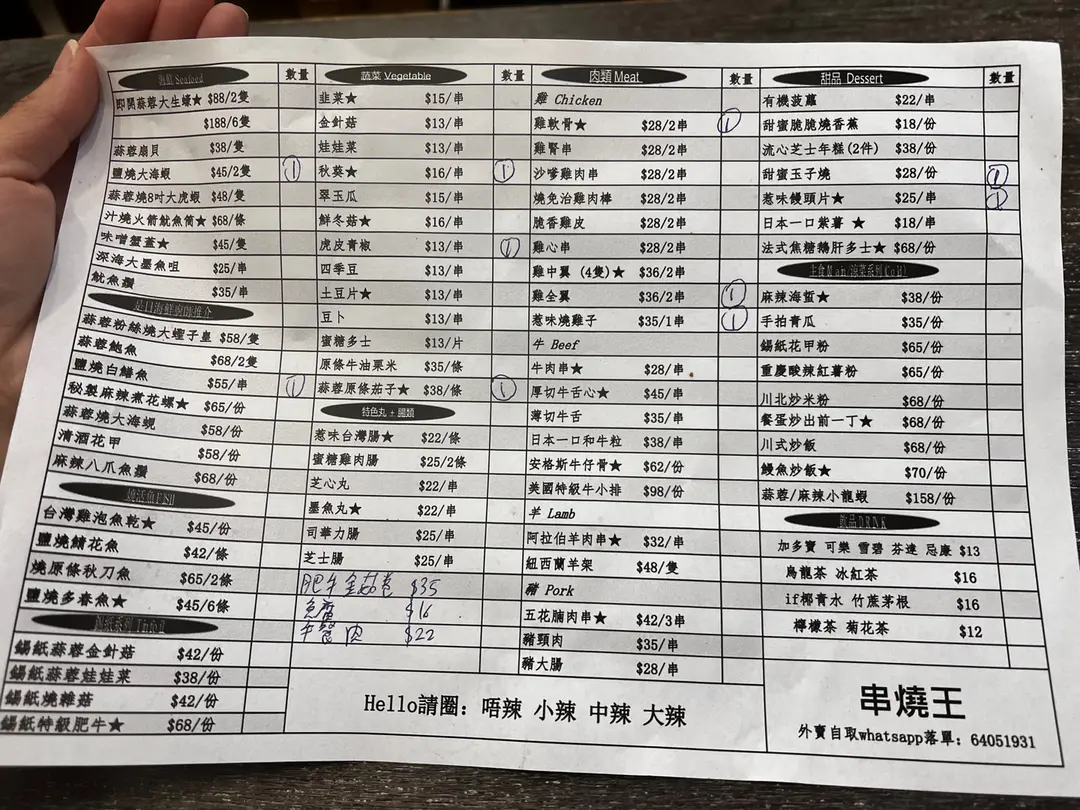 海鮮 Seafood 數量
即開蒜蓉大生蠔★ $88/2隻
$188/6隻
蒜蓉扇貝 $38/隻
鹽燒大海蝦 $45/2隻 1
蒜蓉燒8吋大虎蝦 $48/隻
汁燒火箭魷魚筒★ $68/條
味噌蟹蓋★ $45/隻
深海大墨魚咀 $25/串
魷魚鬚 $35/串
是日海鮮廚師推介
蒜蓉粉絲燒大蟶子皇 $58/隻
蒜蓉鮑魚 $68/2隻
鹽燒白鱔魚 $55/串 1
秘製麻辣煮花螺★ $65/份
蒜蓉燒大海蜆 $58/份
清酒花甲 $58/份
麻辣八爪魚鬚 $68/份
燒活魚FISH
台灣雞泡魚乾★ $45/份
鹽燒鯖花魚 $42/條
燒原條秋刀魚 $65/2條
鹽燒多春魚★ $45/6條
錫紙蒜蓉金針菇 $42/份
錫紙蒜蓉娃娃菜 $38/份
錫紙燒雜菇 $42/份
錫紙特級肥牛★ $68/份
蔬菜 Vegetable 數量
韭菜★ $15/串
金針菇 $13/串
娃娃菜 $13/串
秋葵★ $16/串 1
翠玉瓜 $15/串
鮮冬菇★ $16/串
虎皮青椒 $13/串 1
四季豆 $13/串
土豆片★ $13/串
豆卜 $13/串
蜜糖多士 $13/片
原條牛油粟米 $35/條
蒜蓉原條茄子★ $38/條 1
特色丸+腸類
惹味台灣腸★ $22/條
蜜糖雞肉腸 $25/2條
芝心丸 $22/串
墨魚丸★ $22/串
司華力腸 $25/串
芝士腸 $25/串
肥牛金菇卷 $35
魚腐 $16
午餐肉 $22
肉類 Meat 數量
雞 Chicken
雞軟骨★ $28/2串 1
雞腎串 $28/2串
沙嗲雞肉串 $28/2串
燒免治雞肉棒 $28/2串
脆香雞皮 $28/2串
雞心串 $28/2串
雞中翼 (4隻)★ $36/2串
雞全翼 $36/2串 1
惹味燒雞子 $35/1串 1
牛 Beef
牛肉串★ $28/串
厚切牛舌心★ $45/串
薄切牛舌 $35/串
日本一口和牛粒 $38/串
安格斯牛仔骨★ $62/份
美國特級牛小排 $98/份
羊 Lamb
阿拉伯羊肉串★ $32/串
紐西蘭羊架 $48/隻
豬 Pork
五花腩肉串★ $42/3串
豬頸肉 $35/串
豬大腸 $28/串
甜品 Dessert 數量
有機菠蘿 $22/串
甜蜜脆脆燒香蕉 $18/份
流心芝士年糕(2件) $38/份
甜蜜玉子燒 $28/份 1
惹味饅頭片★ $25/串 1
日本一口紫薯 ★ $18/串
法式焦糖鵝肝多士★ $68/份
主食Main/涼菜系列Cold
麻辣海蜇★ $38/份
手拍青瓜 $35/份
錫紙花甲粉 $65/份
重慶酸辣紅薯粉 $65/份
川北炒米粉 $68/份
餐蛋炒出前一丁★ $68/份
川式炒飯 $68/份
鰻魚炒飯★ $70/份
蒜蓉/麻辣小龍蝦 $158/份
飲品DRINK
加多寶 可樂 雪碧 芬達 忌廉 $13
烏龍茶 冰紅茶 $16
if椰青水 竹蔗茅根 $16
檸檬茶 菊花茶 $12
Hello請圈: 唔辣 小辣 中辣 大辣
串燒王
外賣自取whatsapp落單: 64051931